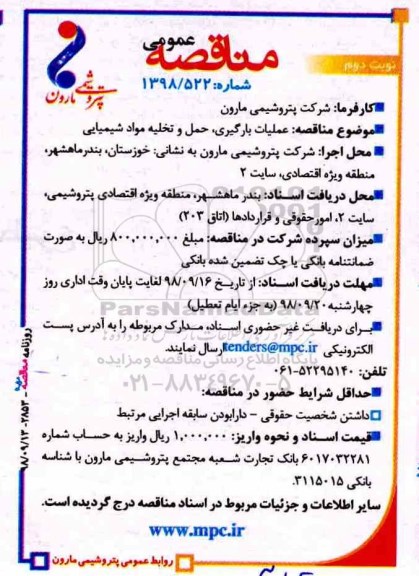 نوبت دوم
مناقصه عمومی
شماره: ۱۳۹۸/۵۲۲
پتروشیمی مارون
کارفرما: شرکت پتروشیمی مارون
موضوع مناقصه: عملیات بارگیری، حمل و تخلیه مواد شیمیایی
محل اجرا: شرکت پتروشیمی مارون به نشانی: خوزستان، بندرماهشهر،
منطقه ویژه اقتصادی، سایت ۲
محل دریافت اسناد: بندر ماهشهر، منطقه ویژه اقتصادی پتروشیمی،
سایت ۲، امورحقوقی و قراردادها (اتاق ۲۰۳)
میزان سپرده شرکت در مناقصه: مبلغ ۸۰۰,۰۰۰,۰۰۰ ریال به صورت
ضمانتنامه بانکی یا چک تضمین شده بانکی
مهلت دریافت اسناد: از تاریخ ۹۸/۰۹/۱۶ لغایت پایان وقت اداری روز
چهارشنبه ۹۸/۰۹/۲۰ (به جزء ایام تعطیل)
ParsNamadData
برای دریافت غیر حضوری اسناد، مدارک مربوطه را به آدرس پست
الکترونیکی tenders@mpc.ir ارسال نمایند.
پایگاه اطلاع رسانی مناقصه و مزایده
تلفن: ۵۲۲۹۵۱۴۰-۰۶۱
۰۲۱-۸۸۳۴۹۶۷۰-۵
حداقل شرایط حضور در مناقصه:
داشتن شخصیت حقوقی - دارابودن سابقه اجرایی مرتبط
قیمت اسناد و نحوه واریز: ۱,۰۰۰,۰۰۰ ریال واریز به حساب شماره
۶۰۱۷۰۳۲۲۸۱ بانک تجارت شعبه مجتمع پتروشیمی مارون با شناسه
بانکی ۳۱۱۵۰۱۵.
سایر اطلاعات و جزئیات مربوط در اسناد مناقصه درج گردیده است.
www.mpc.ir
روابط عمومی پتروشیمی مارون
روزنامه مناقصه - ۲۸۵۳ - ۹۸/۰۹/۱۳